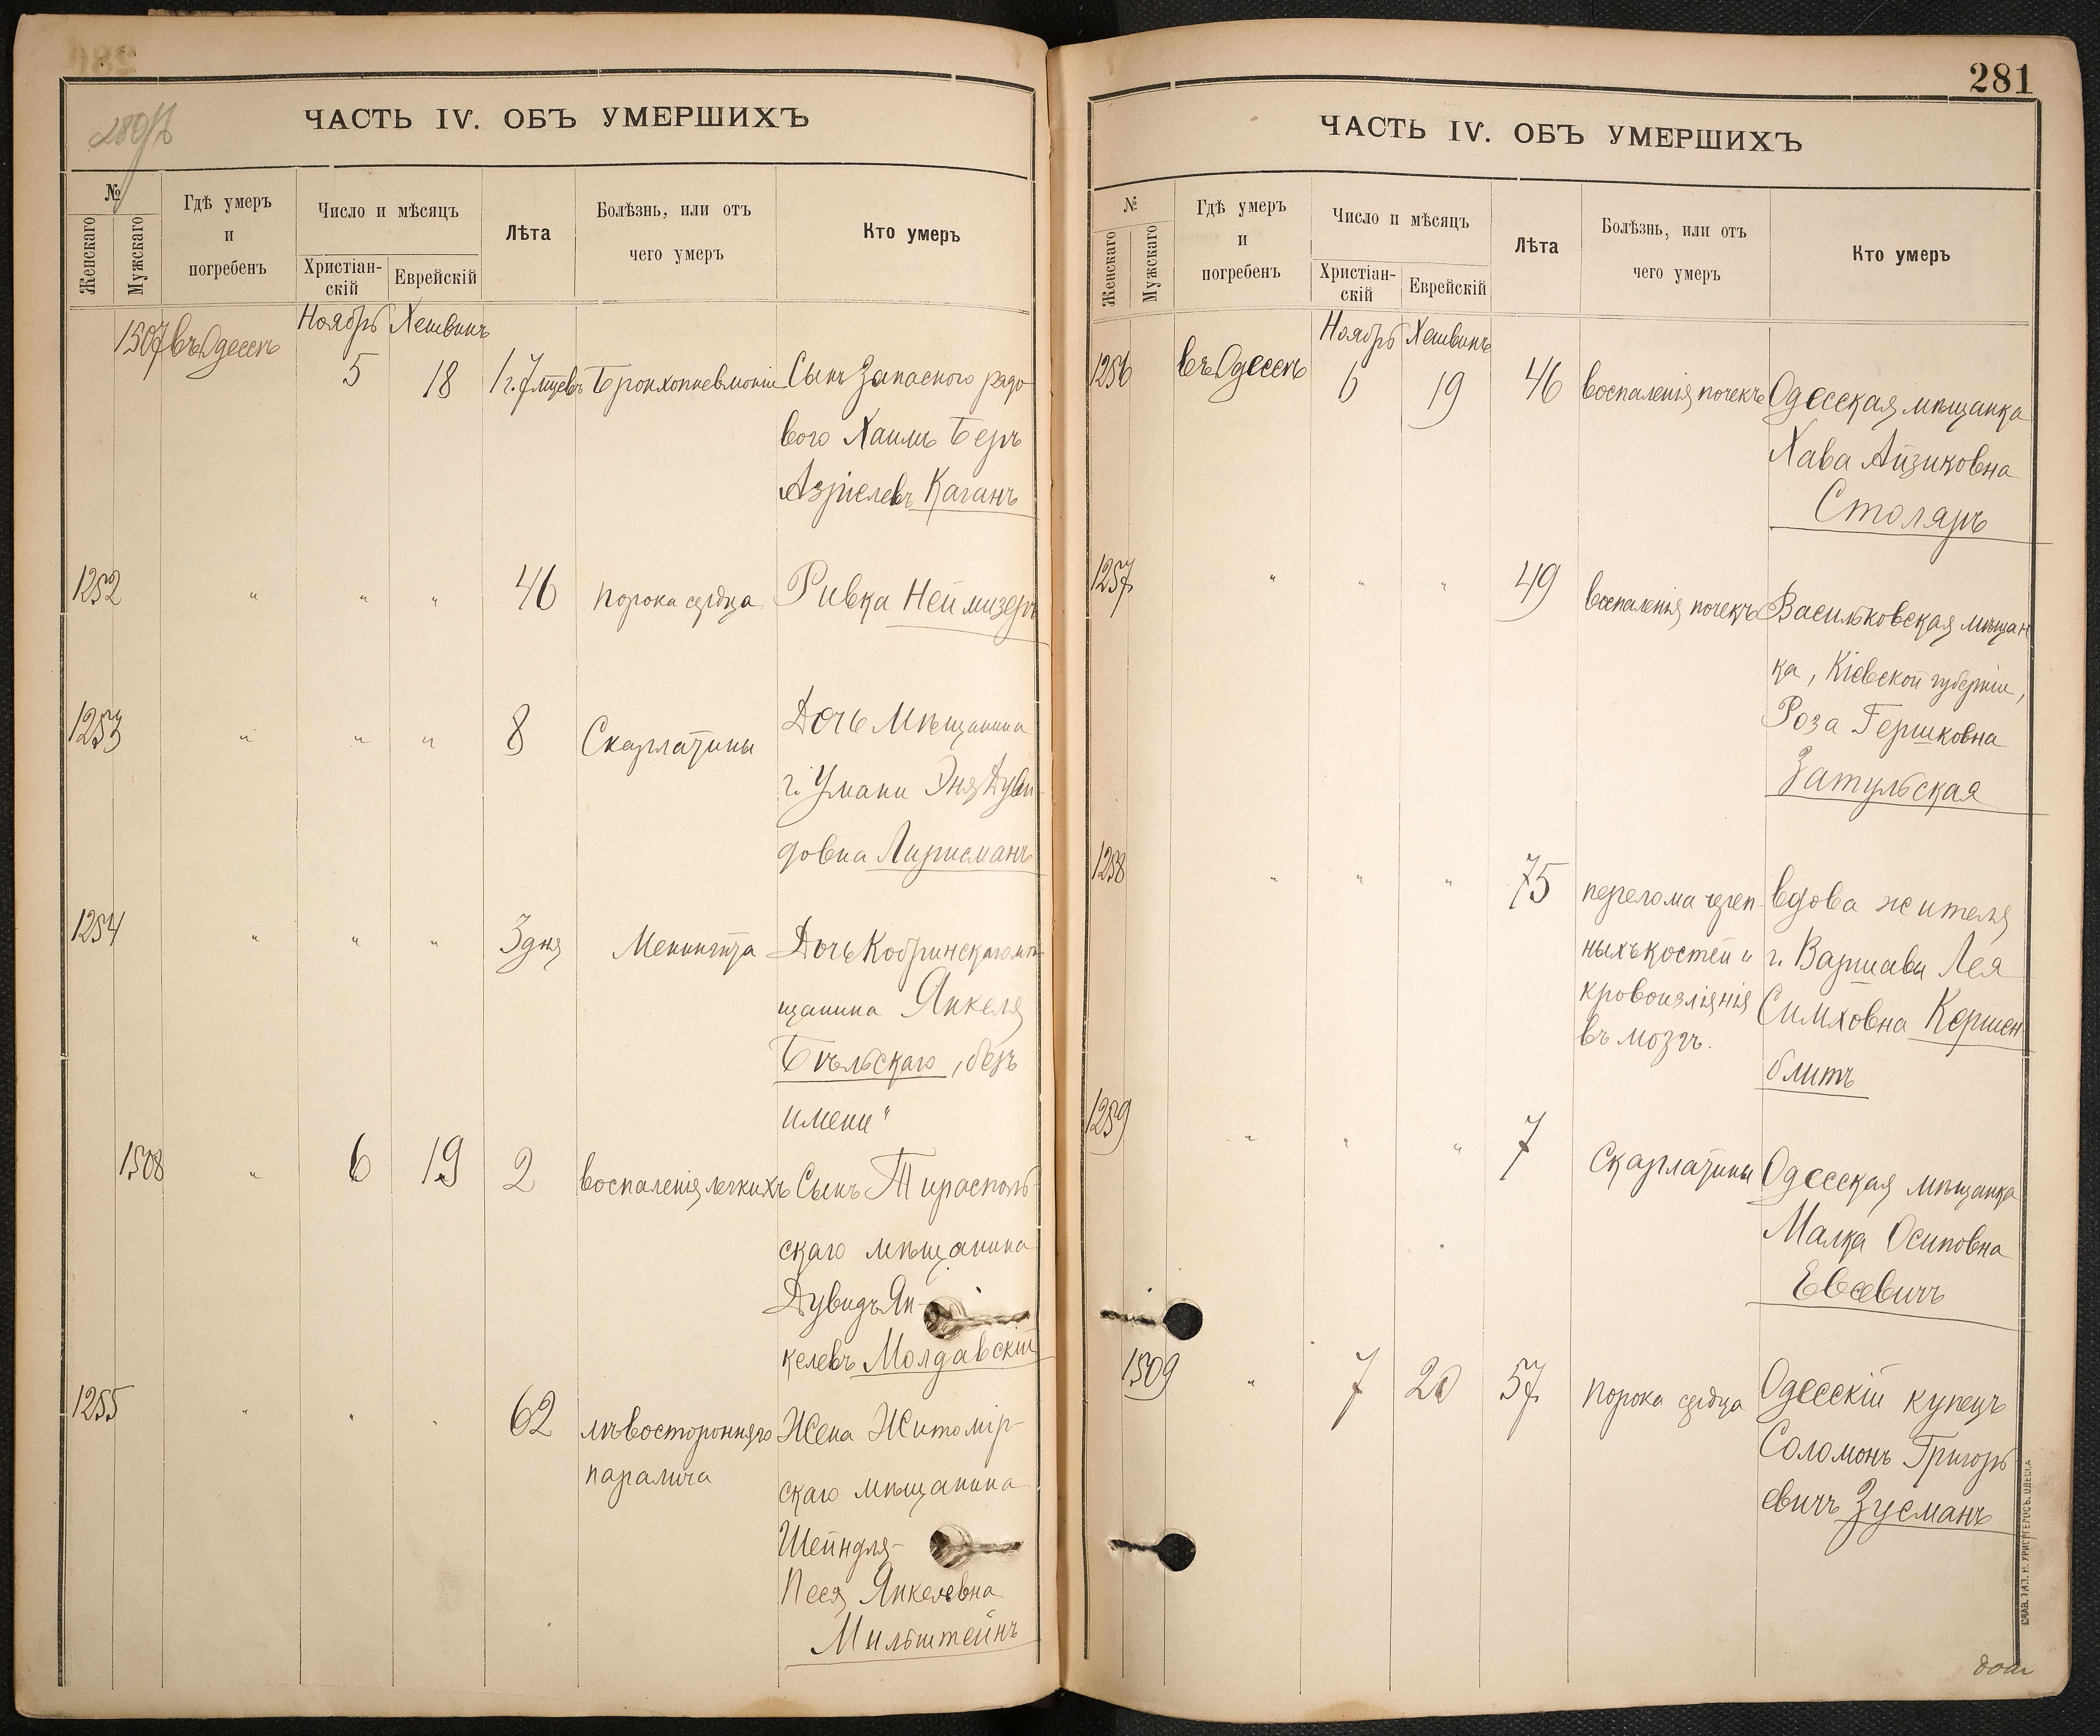 280об
ЧАСТЬ IV. ОБЪ УМЕРШИХЪ
№
Женскаго
Мужскаго
Гдѣ умеръ
и
погребенъ
Число и мѣсяцъ
Христіан-
скій
Еврейскій
Лѣта
Болѣзнь, или отъ
чего умеръ
Кто умеръ
Ноябрь Хешвинъ
1507 въ Одессѣ 5 18 1 г. 7 мцевъ Бронхопневмоніи Сынъ Запасного рядо
вого Хаимъ Беръ
Азріелевъ Каганъ
1252 " " " 46 порока сердца Ривка Неймизеръ
1253 " " " 8 Скарлатины Дочь Мѣщанина
г. Умани Эня Дуви-
довна Лирисманъ
1254 " " " 3 дня Менингита Дочь Кобринскаго мѣ-
щанина Янкеля
Бѣльскаго, "безъ
имени"
1508 " 6 19 2 воспаленія легкихъ Сынъ Тирасполь-
скаго мѣщанина
Дувидъ Ян-
келевъ Молдавскій
1255 " " " 62 лѣвосторонняго Жена Житомір-
паралича скаго мѣщанина
Шейндля-
Песя Янкелевна
Мильштейнъ
281
ЧАСТЬ IV. ОБЪ УМЕРШИХЪ
№
Женскаго
Мужскаго
Гдѣ умеръ
и
погребенъ
Число и мѣсяцъ
Христіан-
скій
Еврейскій
Лѣта
Болѣзнь, или отъ
чего умеръ
Кто умеръ
Ноябрь Хешвинъ
1256 въ Одессѣ 6 19 46 воспаленія почекъ Одесская мѣщанка
Хава Айзиковна
Столяръ
1257 " " " 49 воспаленія почекъ Васильковская мѣщан
ка, Кіевской губерніи,
Роза Гершковна
Затульская
1258 " " " 75 перелома череп- вдова жителя
ныхъ костей и г. Варшавы Лея
кровоизліянія Симховна Кершен
въ мозгъ. блитъ
1259 " " " 7 Скарлатины Одесская мѣщанка
Малка Осиповна
Евсевичъ
1509 " 7 20 57 порока сердца Одесскій купецъ
Соломонъ Григорь
евичъ Зусманъ
СЛАВ. ТИП. Н. ХРИСОГЕЛОСЪ. ОДЕССА